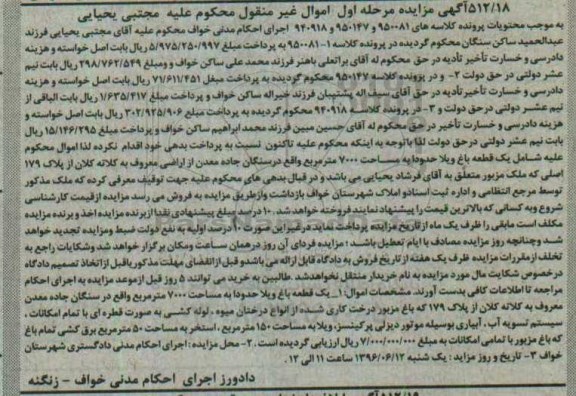 ۵۱۲/۱۸آگهی مزایده مرحله اول اموال غیر منقول محکوم علیه مجتبی یحیایی
به موجب محتویات پرونده کلاسه های ۹۵۰۰۸۱ و ۹۵۰۱۴۷ و ۹۴۰۹۱۸ اجرای احکام مدنی خواف محکوم علیه آقای مجتبی یحیایی فرزند
عبدالحمید ساکن سنگان محکوم گردیده در پرونده کلاسه ۱-۹۵۰۰۸۱ به پرداخت مبلغ ۵/۹۷۵/۲۵۰/۹۹۷ ریال بابت اصل خواسته و هزینه
دادرسی و خسارت تأخیر تأدیه در حق محکوم له آقای براتعلی باهنر فرزند محمد علی ساکن خواف و مبلغ ۲۹۸/۷۶۲/۵۴۹ ریال بابت نیم
عشر دولتی در حق دولت ۲- و در پرونده کلاسه ۹۵۰۱۴۷ محکوم گردیده به پرداخت مبلغ ۷۱/۶۱۱/۴۵۱ ریال بابت اصل خواسته و هزینه
دادرسی و خسارت تأخیر تأدیه در حق آقای سیف اله پشتیبان فرزند خیراله ساکن خواف و پرداخت مبلغ ۱/۶۳۵/۴۱۷ ریال بابت الباقی از
نیم عشر دولتی در حق دولت و ۳- در پرونده کلاسه ۹۴۰۹۱۸ محکوم گردیده به پرداخت مبلغ ۳۰۲/۹۲۵/۹۰۶ ریال بابت اصل خواسته و
هزینه دادرسی و خسارت تأخیر در حق محکوم له آقای حسین مبین فرزند محمد ابراهیم ساکن خواف و پرداخت مبلغ ۱۵/۱۴۶/۲۹۵ ریال
بابت نیم عشر دولتی در حق دولت لذا باتوجه به اینکه محکوم علیه تاکنون نسبت به پرداخت بدهی خود اقدام نکرده لذا اموال محکوم
علیه شامل یک قطعه باغ ویلا حدودا به مساحت ۷۰۰۰ مترمربع واقع در سنگان جاده معدن از اراضی معروف به کلاته کلان از پلاک ۱۷۹
اصلی که ملک مزبور متعلق به آقای فرشاد یحیایی می باشد و در قبال بدهی های محکوم علیه جهت توقیف معرفی کرده که ملک مذکور
توسط مرجع انتظامی و اداره ثبت اسناد و املاک شهرستان خواف بازداشت و از طریق مزایده به فروش می رسد مزایده از قیمت کارشناسی
شروع و به کسانی که بالاترین قیمت را پیشنهاد نمایند فروخته خواهد شد . ۱۰ درصد مبلغ پیشنهادی نقدا از برنده مزایده اخذ و برنده مزایده
مکلف است مابقی را ظرف یک ماه از تاریخ مزایده پرداخت نماید در غیر این صورت ۱۰ درصد اولیه به نفع دولت ضبط و مزایده تجدید خواهد
شد و چنانچه روز مزایده مصادف با ایام تعطیل باشد ؛ مزایده فردای آن روز در همان ساعت و مکان برگزار خواهد شد و شکایات راجع به
تخلف از مقررات مزایده ظرف یک هفته از تاریخ فروش به دادگاه قابل ارائه می باشد و قبل از انقضای مهلت مذکور یا قبل از اتخاذ تصمیم دادگاه
در خصوص شکایت مال مورد مزایده به نام خریدار منتقل نخواهد شد .طالبین به خرید می توانند ۵ روز قبل از موعد مزایده به اجرای احکام
مراجعه تا اطلاعات کافی بدست آورند. مشخصات اموال: ۱_ یک قطعه باغ ویلا حدودا به مساحت ۷۰۰۰ مترمربع واقع در سنگان جاده معدن
معروف به کلاته کلان از پلاک ۱۷۹ که باغ مزبور درخت کاری شده از انواع درختان میوه ، لوله کشی به صورت قطره ای با تمام امکانات ،
سیستم تسویه آب ، آبیاری بوسیله موتور دیزلی پرکینسز، ویلا به مساحت ۱۵۰ مترمربع ، استخر به مساحت ۵۰ مترمربع برق کشی تمام باغ
که باغ مزبور با تمامی امکانات به مبلغ ۷/۰۰۰/۰۰۰/۰۰۰ ریال ارزیابی گردیده است . ۲- محل مزایده : اجرای احکام مدنی دادگستری شهرستان
خواف ۳- تاریخ و روز مزاید : یک شنبه ۱۳۹۶/۰۶/۱۲ ساعت ۱۱ الی ۱۲ .
دادورز اجرای احکام مدنی خواف - زنگنه